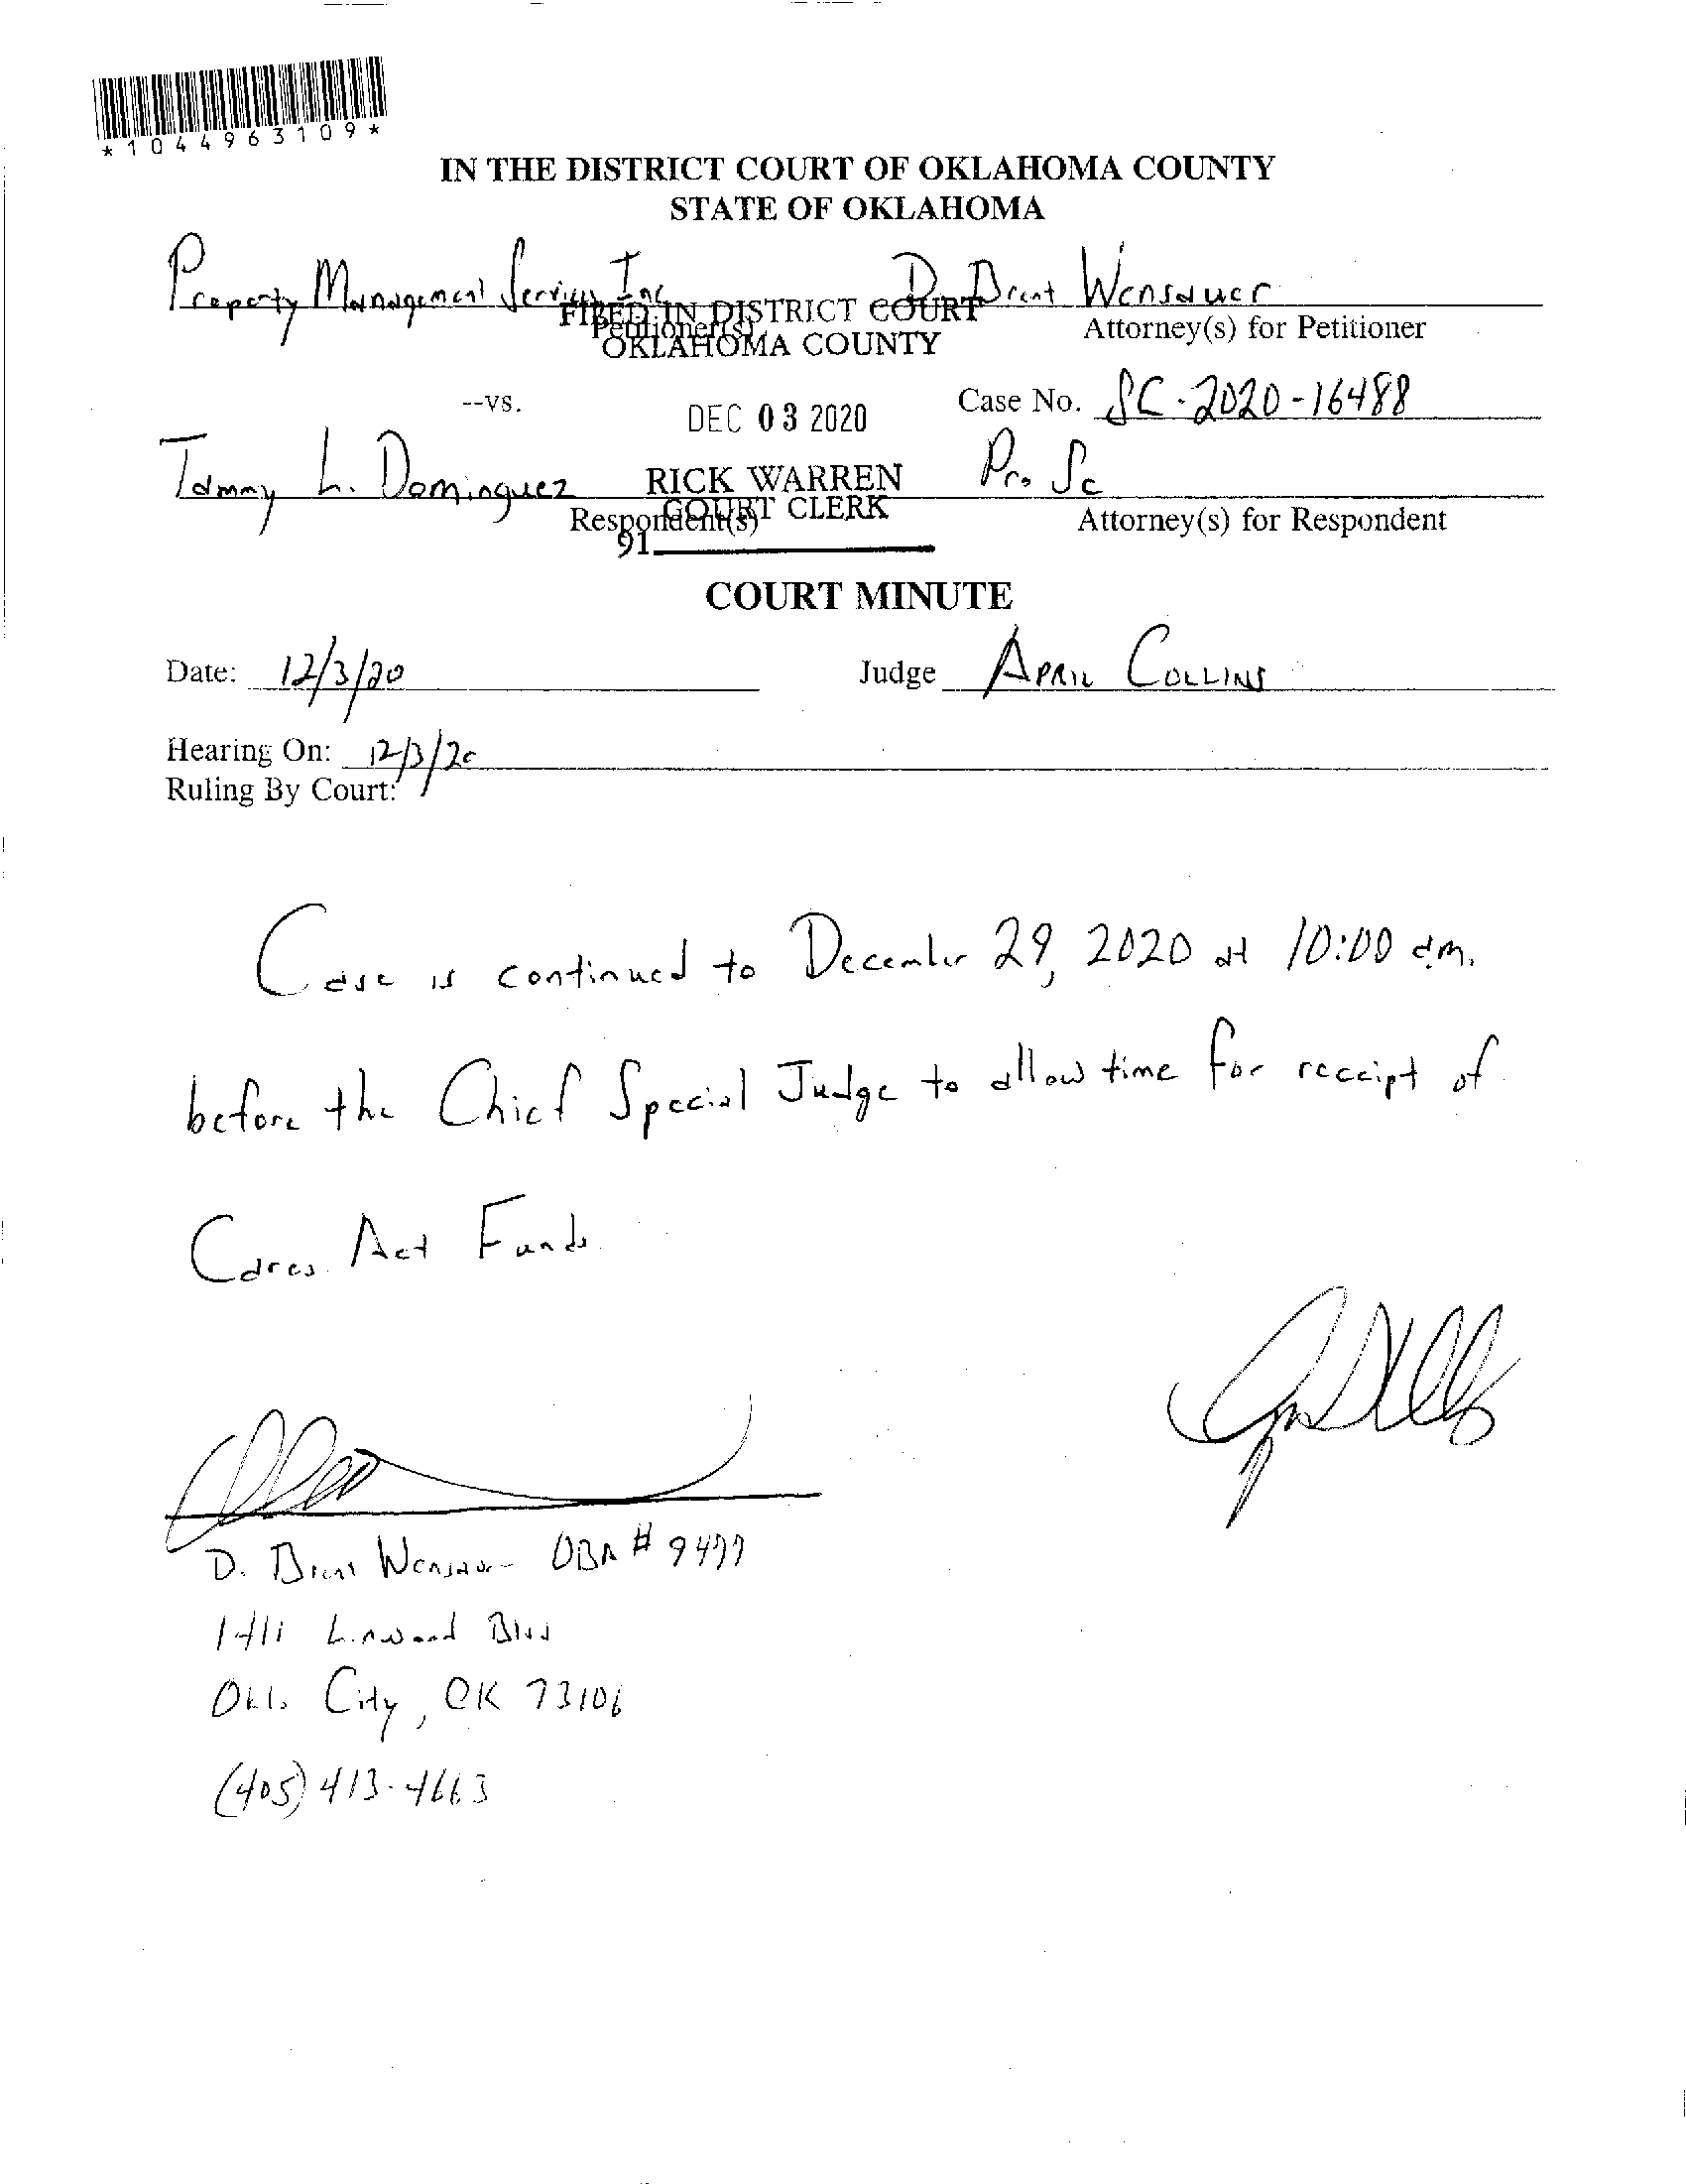 *1044963109*
IN THE DISTRICT COURT OF OKLAHOMA COUNTY
STATE OF OKLAHOMA
Property Management Services Inc D. Brent Wensauer
Petitioner(s), Attorney(s) for Petitioner
FILED IN DISTRICT COURT
OKLAHOMA COUNTY
--vs. DEC 03 2020 Case No. SC-2020-16488
Tammy L. Dominguez Pro Se
RICK WARREN
COURT CLERK
Respondent(s) Attorney(s) for Respondent
91
COURT MINUTE
Date: 12/3/20 Judge APRIL COLLINS
Hearing On: 12/3/20
Ruling By Court:
Case is continued to December 29, 2020 at 10:00 a.m.
before the Chief Special Judge to allow time for receipt of
Cares Act Funds
D. Brent Wensauer OBA # 9477
1411 Linwood Blvd
Okla City, OK 73106
(405) 413-4663